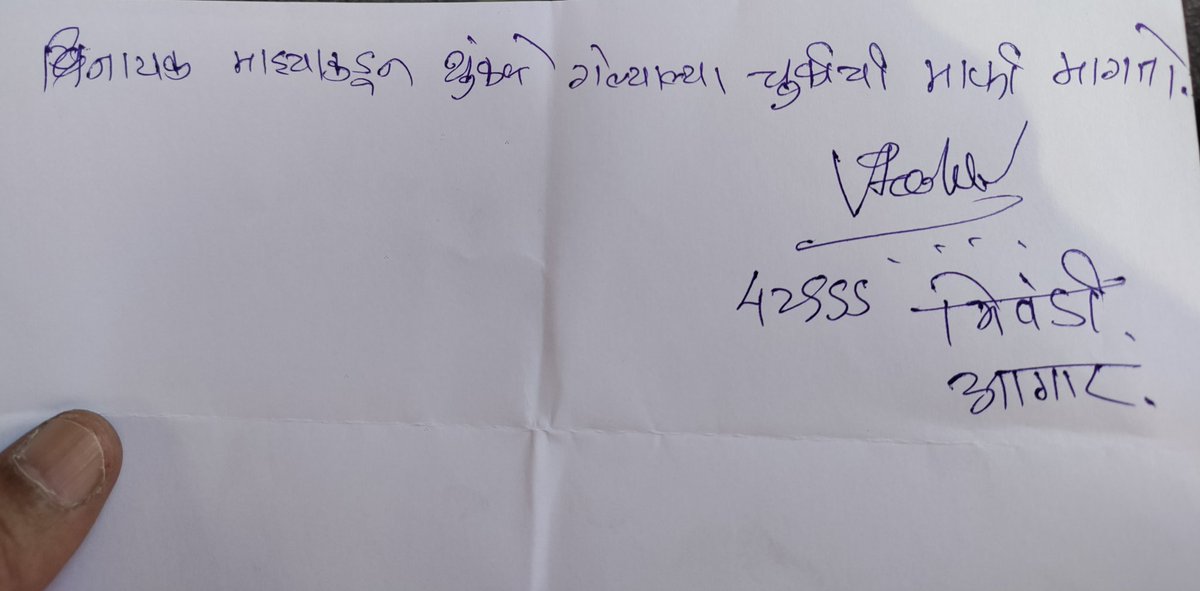 विनायक माझ्याकडून थुंकले गेल्याल्या चुकिची माफी मागतो.
42999 भिवंडी.
आगार.